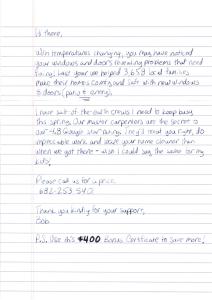 Hi there,
With temperatures changing, you may have noticed
your windows and doors revealing problems that need
fixing. Last year we helped 3,653 local families
make their homes comfy and safe with new windows
& doors (patio & entry).
I have out of the craftsmen crews I need to keep busy
this spring. Our master carpenters are the secret to
our 4.8 Google star rating. They'll treat you right, do
impeccable work and leave your home cleaner than
when we got there - wish I could say the same for my
kids!
Please call us for a price
632-253-540
Thank you kindly for your support,
Bob
P.S. Use this $400 Bonus Certificate to save more!